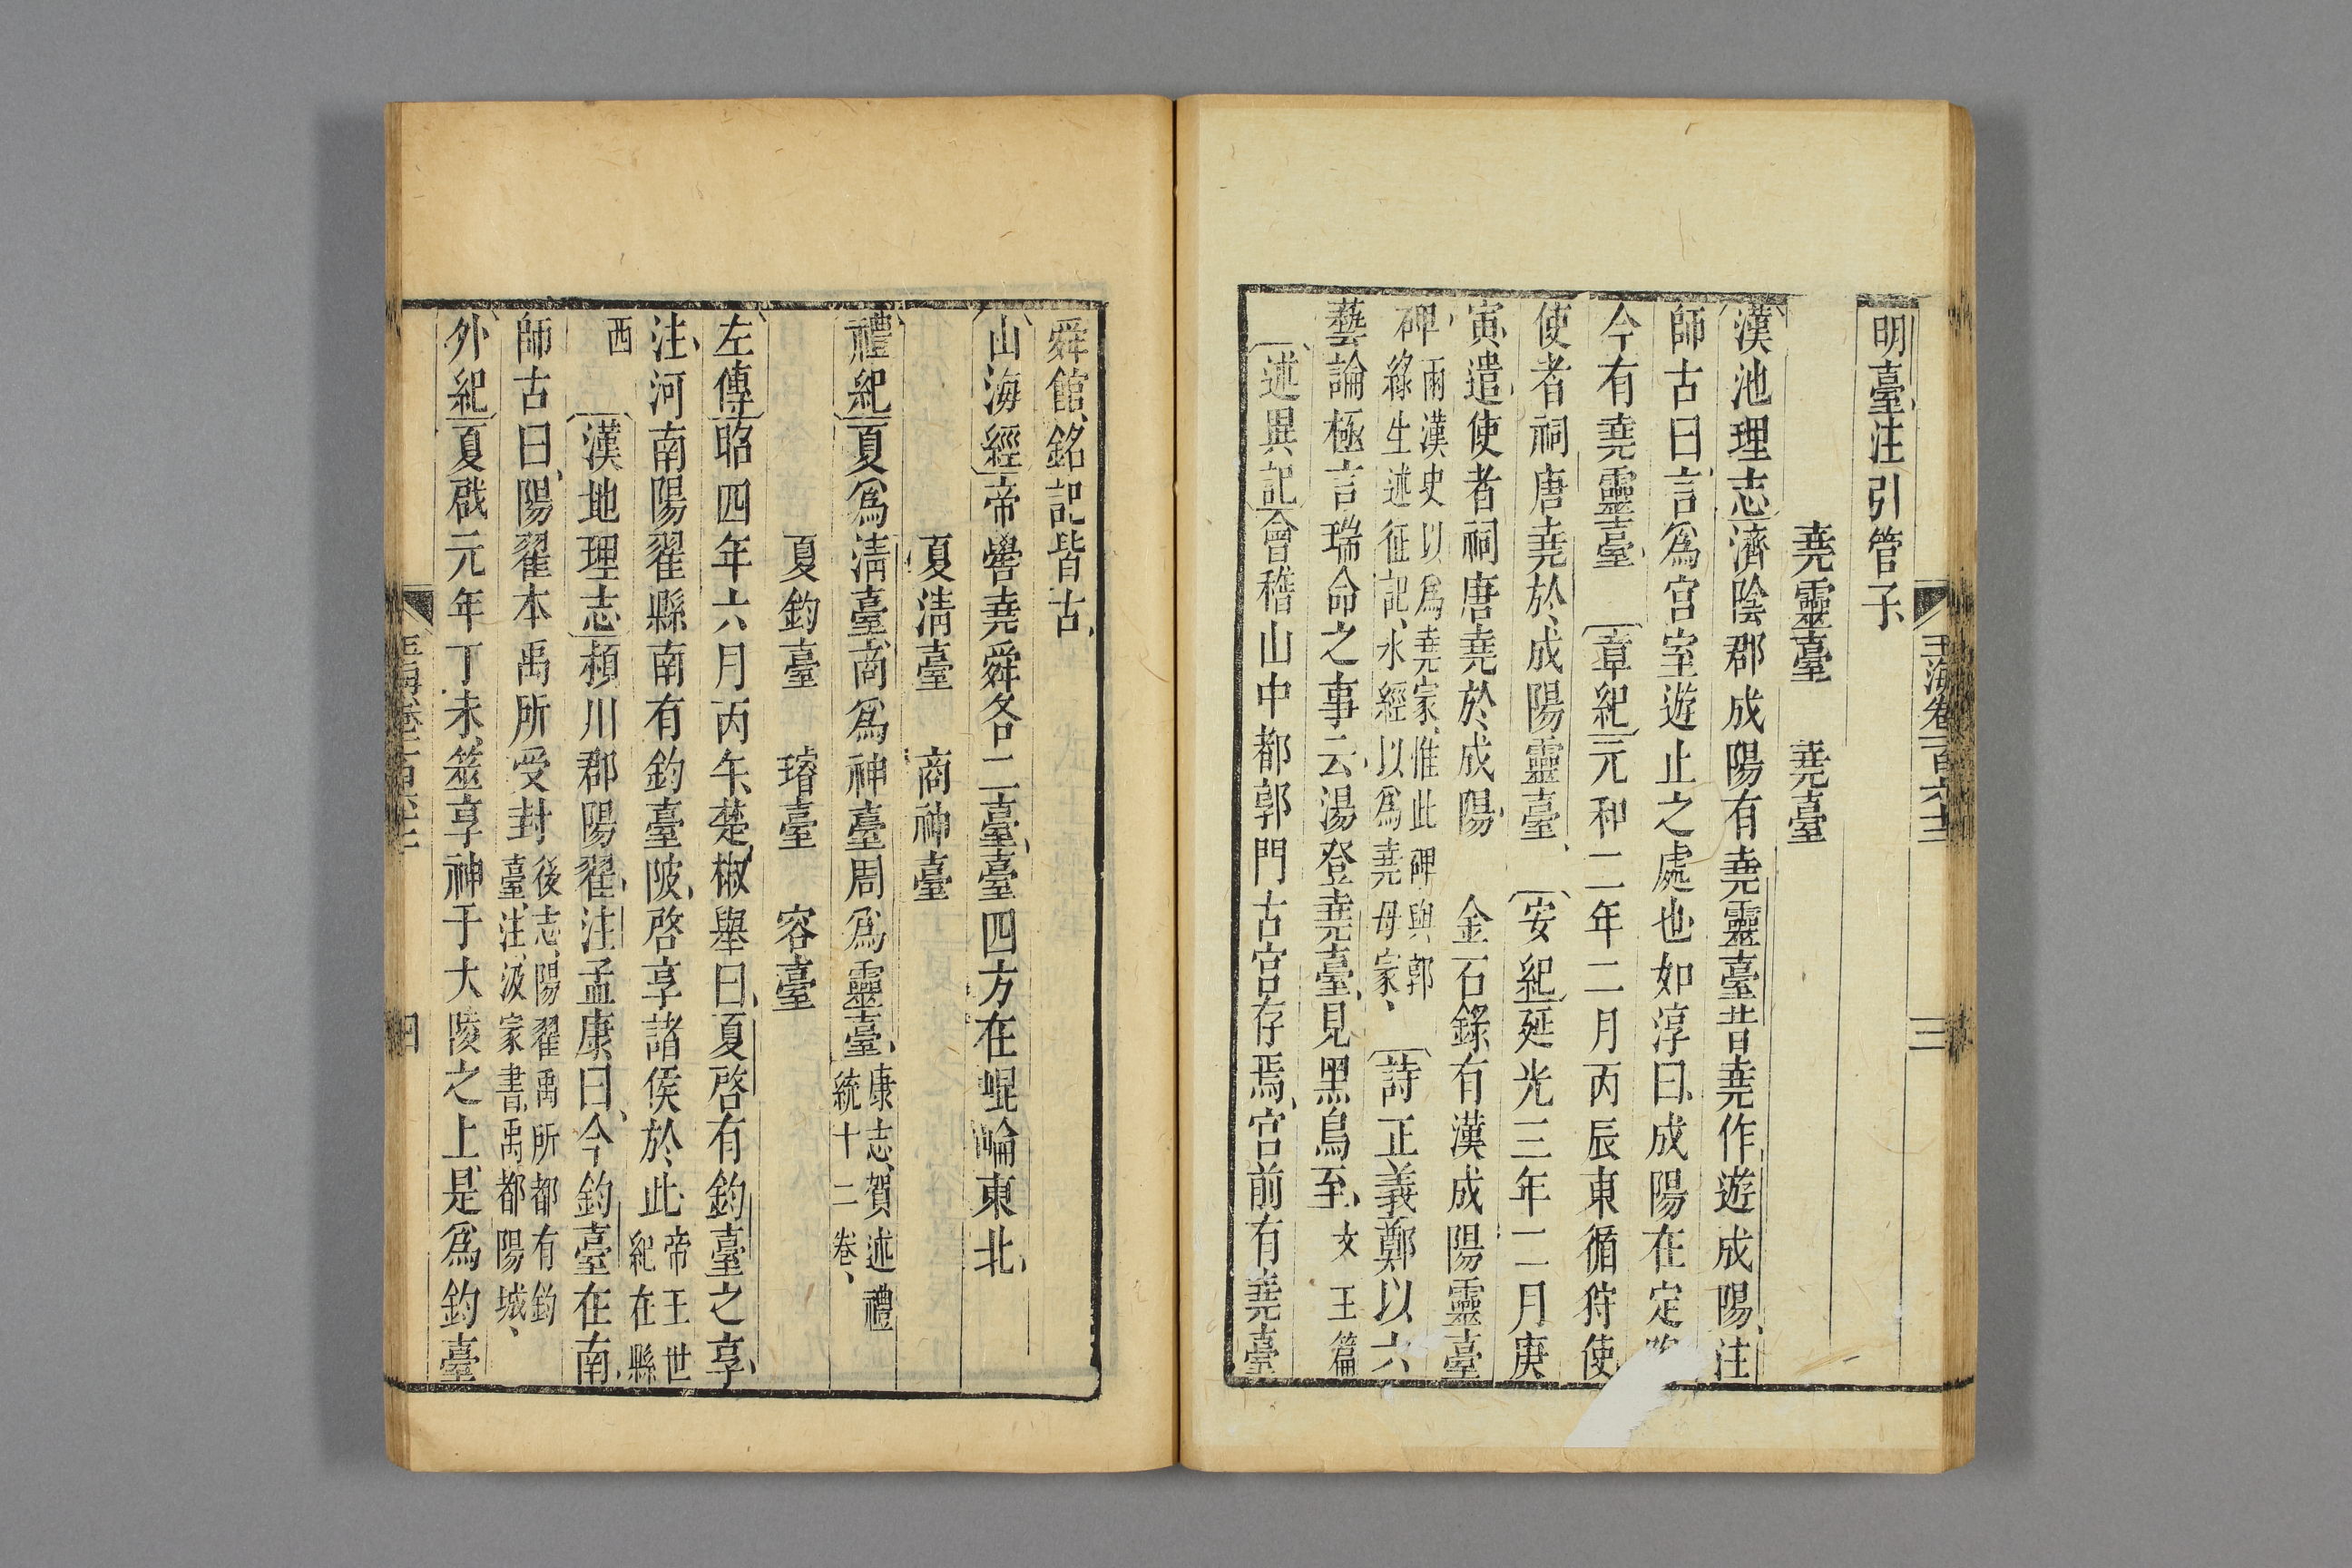 玉海卷一百六十二
三
明臺注引管子
堯靈臺　堯臺
漢池理志濟陰郡成陽有堯靈臺昔堯作遊成陽注
師古曰言爲宮室遊止之處也如淳曰成陽在定
今有堯靈臺　章紀元和二年二月丙辰東循狩使
使者祠唐堯於成陽靈臺　安紀延光三年二月庚
寅遣使者祠唐堯於成陽　金石錄有漢成陽靈臺
碑兩漢史以爲堯冢惟此碑與郭
緣生述征記水經以爲堯母冢　詩正義鄭以六
藝論極言瑞命之事云湯登堯臺見黑鳥至文王篇
述異記會稽山中都郭門古宮存焉宮前有堯臺
舜館銘記皆古
山海經帝嚳堯舜各二臺臺四方在崐崘東北
夏淸臺　商神臺
禮紀夏爲淸臺商爲神臺周爲靈臺康志賀述禮
統十二卷
夏鈞臺　璿臺　容臺
左傳昭四年六月丙午楚椒舉曰夏啓有鈞臺之享
注河南陽翟縣南有鈞臺陂啓享諸侯於此帝王世
紀在縣
西　漢地理志潁川郡陽翟注孟康曰今鈞臺在南
師古曰陽翟本禹所受封後志陽翟禹所都有鈞
臺注汲冢書禹都陽城
外紀夏啟元年丁未筮享神于大陵之上是爲鈞臺
四